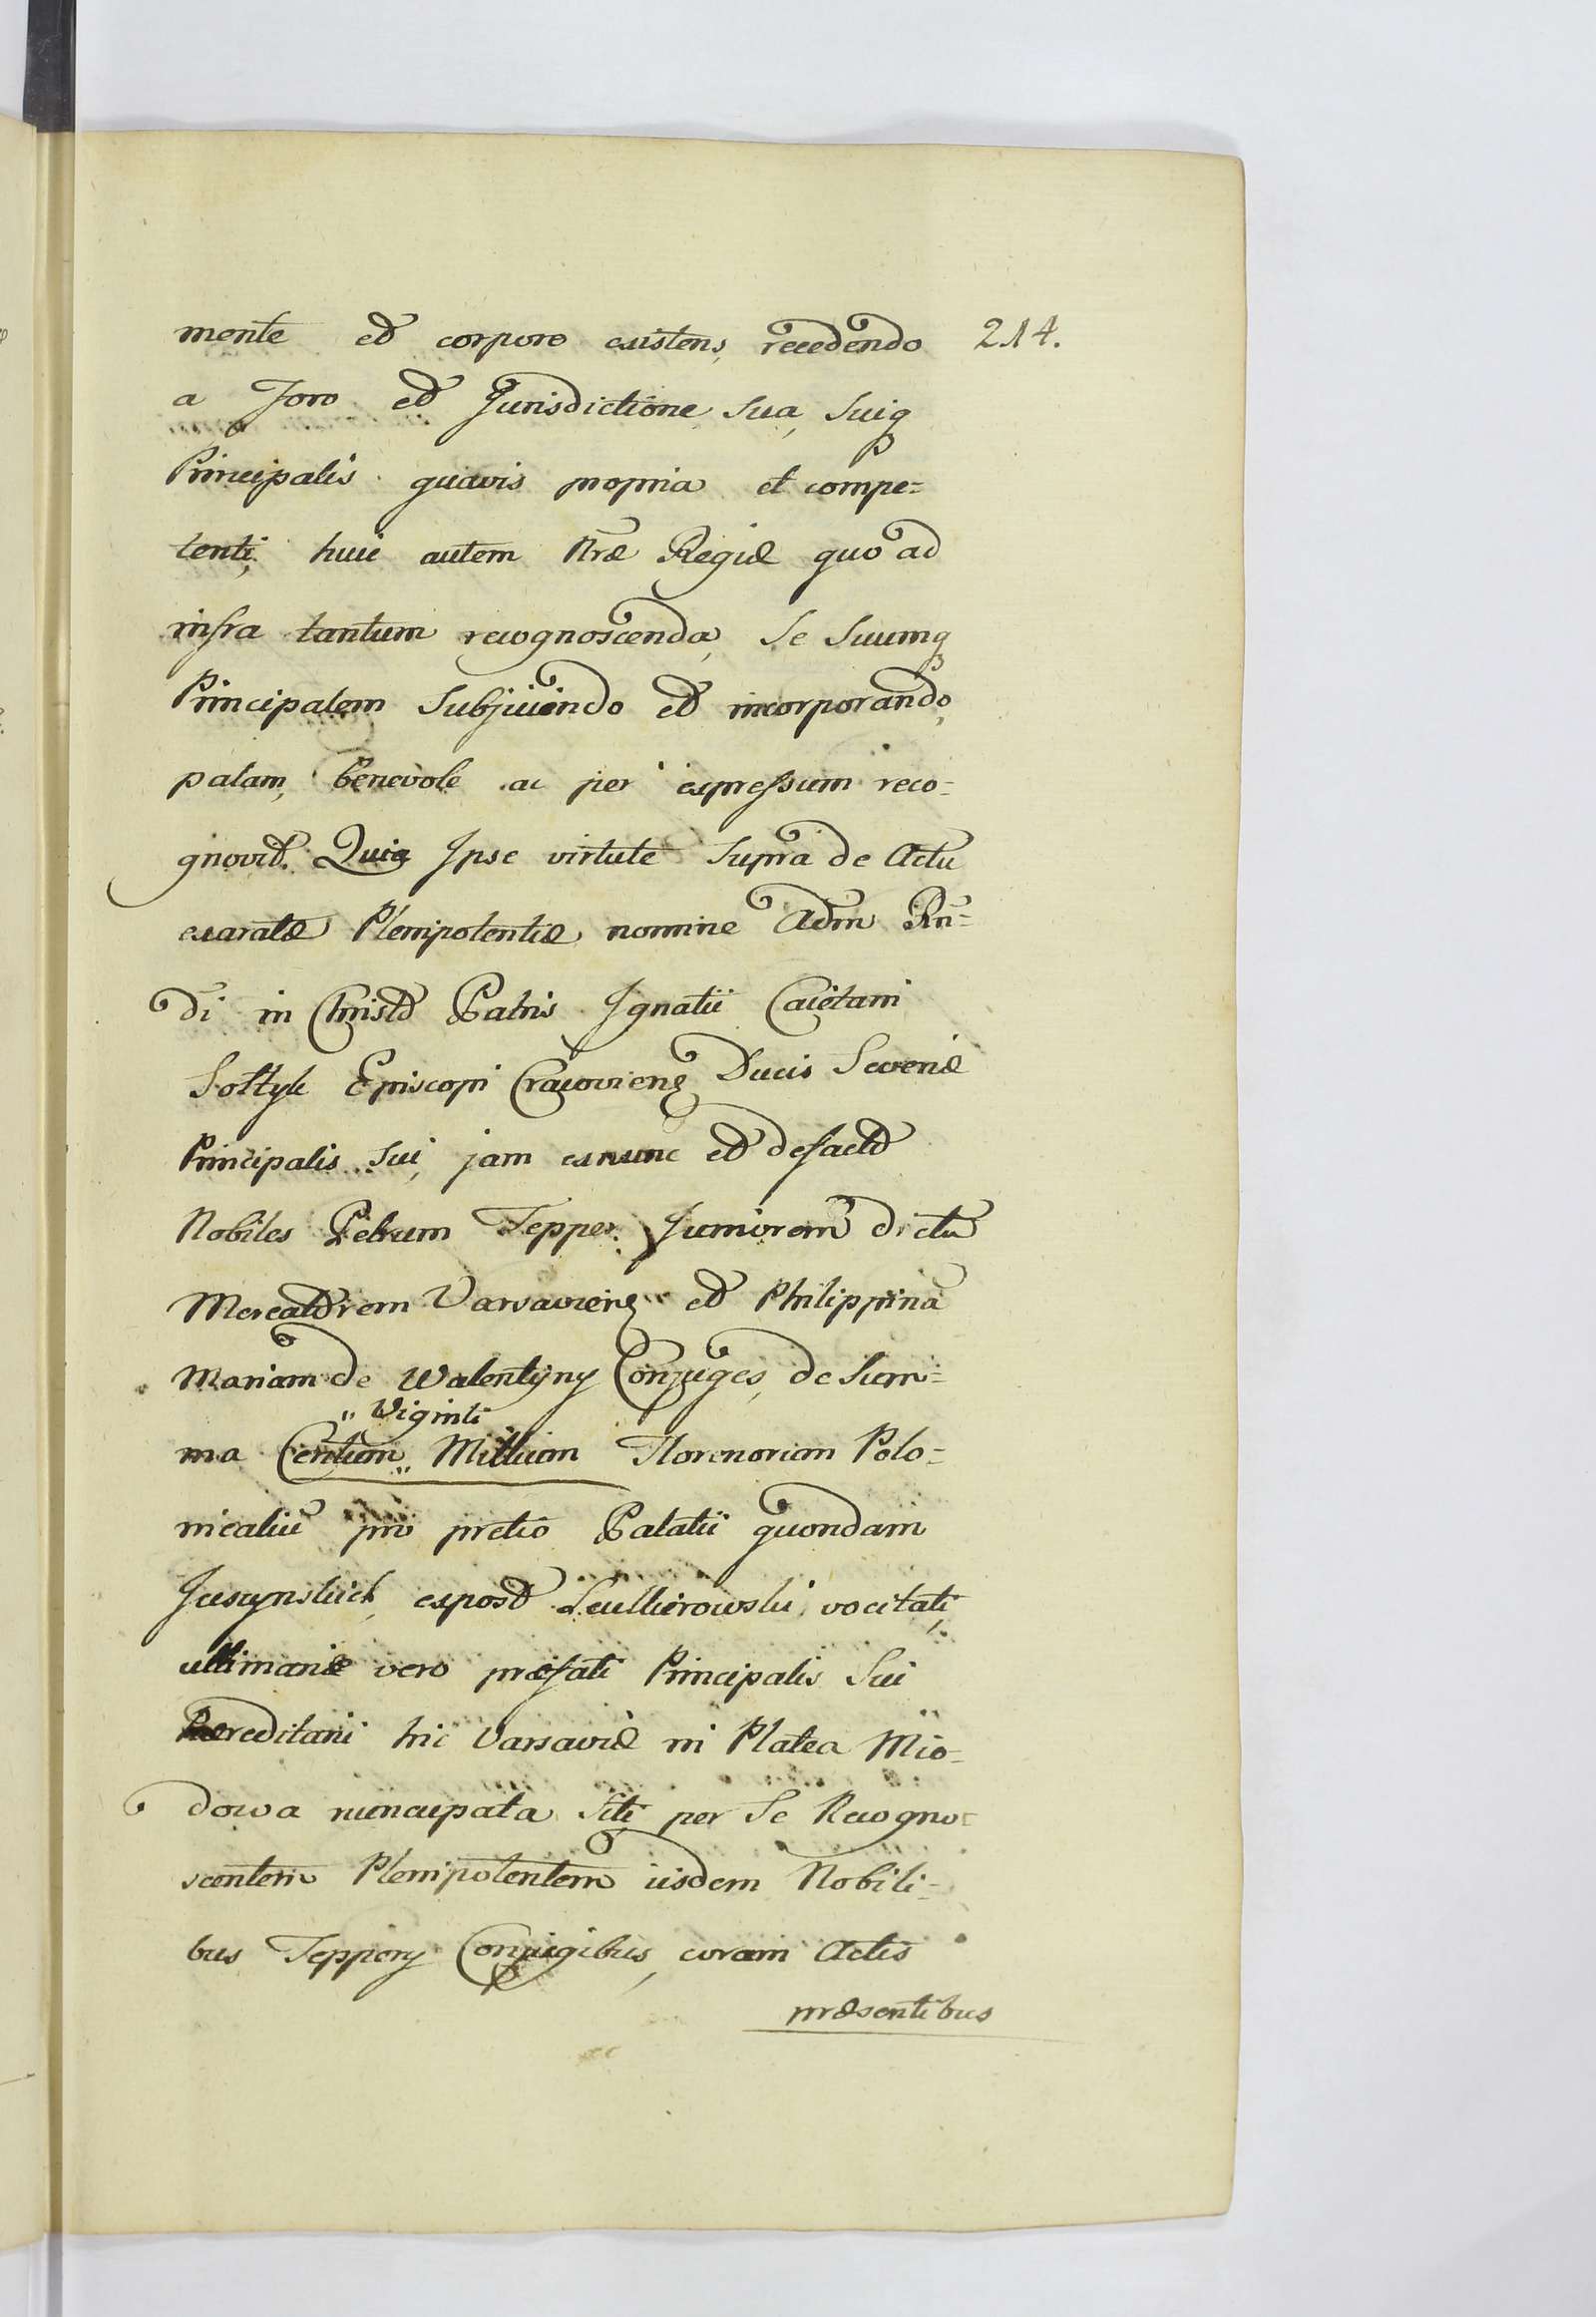 mente et corpore existens, recedendo 214.
a Foro et Jurisdictione sua, suiq
Principalis quavis propria et compe=
tenti, huic autem Nræ Regiæ quo ad
infra tantum recognoscenda, Se Suumq
Principalem Subjiciendo et incorporando,
palam, benevole ac per expressum reco=
gnovit. Quia Ipse virtute supra de Actu
exaratæ Plenipotentiæ nomine Adm Rn=
di in Christo Patris Ignatii Caietani
Sołtyk Episcopi Cracovieng Ducis Severiæ
Principalis sui, jam exnunc et defacto
Nobiles Petrum Tepper Juniorem dictu
Mercatorem Varsavieng et Philippina
Mariam de Walentyny Conjuges, de Sum=
" Viginti
ma Centum " Millium Florenorum Polo=
nicaliu pro pretio Palatii quondam
expost vocitati,
ultimarie vero præfati Principalis Sui
Hæreditarii hic Varsaviæ in Platea Mio=
dowa nuncupata siti, per Se Recogno=
scentem Plenipotentem iisdem Nobili=
bus Teppery Conjugibus, coram Actis
præsentibus